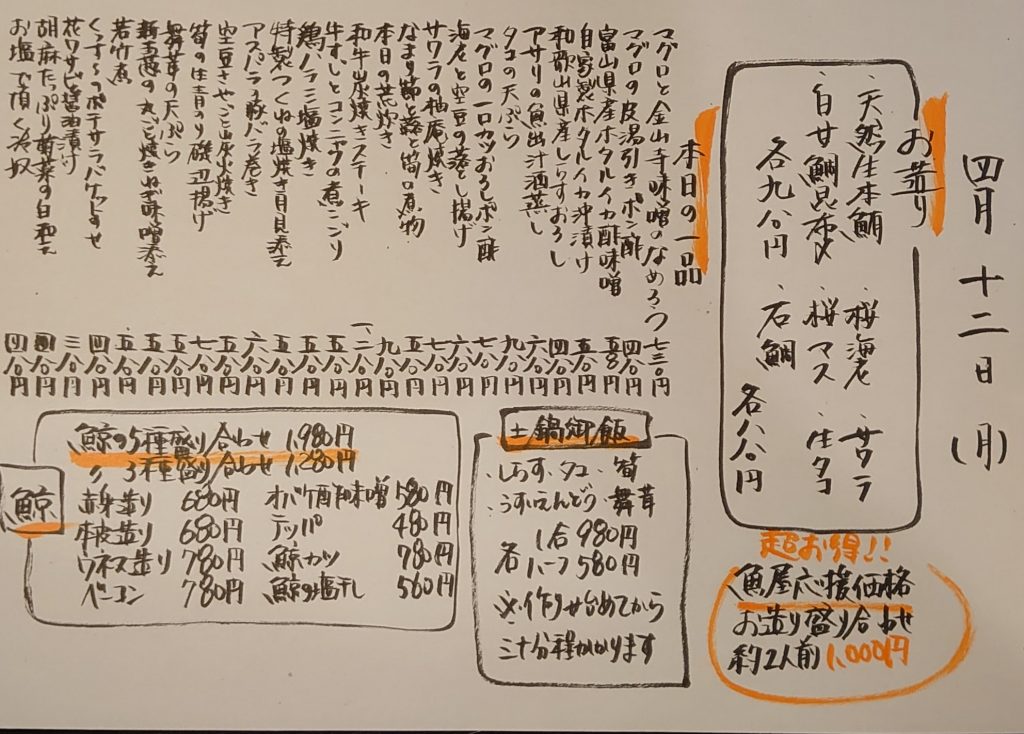 四月十二日(月)
お造り
・天然生本鯛 ・桜海老 ・サワラ
・白甘鯛昆布〆 ・桜マス ・生タコ
各九八〇円 ・石鯛 各八八〇円
超お得!!
魚屋応援価格
お造り盛り合わせ
約2人前 1,000円
本日の一品
マグロと金山寺味噌のなめろう 七三〇円
マグロの皮湯引きポン酢 四八〇円
富山県産ホタルイカ酢味噌 五八〇円
自家製ホタルイカ沖漬け 五八〇円
和歌山県産しらすおろし 四八〇円
アサリの魚出汁酒蒸し 六八〇円
タコの天ぷら 九八〇円
マグロの一口カツおろしポン酢 七八〇円
海老と空豆の落とし揚げ 六八〇円
サワラの柚庵焼き 七八〇円
なまり節と蕗と筍の煮物 七八〇円
本日の荒炊き 九八〇円
和牛炭焼きステーキ 一、二八〇円
牛すじとコンニャクの煮こごり 五八〇円
鶏ハラミ塩焼き 五八〇円
特製つくねの塩焼き月見添え 五八〇円
アスパラの豚バラ巻き 六八〇円
空豆さやごと炭火焼き 五八〇円
筍の生青のり磯辺揚げ 七八〇円
舞茸の天ぷら 五八〇円
新玉葱の丸ごと焼きねぎ味噌添え 五八〇円
若竹煮 五八〇円
くんせいポテサラバケット添え 四八〇円
花ワサビ醤油漬け 三八〇円
胡麻たっぷり菊菜の白和え 四八〇円
お塩で頂く冷奴 四八〇円
土鍋御飯
・しらす・タコ・筍
・うすいえんどう・舞茸
各 1合 980円
ハーフ 580円
※作り始めてから
三十分程かかります
鯨
鯨の5種盛り合わせ 1,980円
〃 3種盛り合わせ 1,280円
赤身造り 680円 オバケ酢味噌 580円
本皮造り 680円 テッパ 480円
ウネス造り 780円 鯨カツ 780円
ベーコン 780円 鯨の塩干し 560円